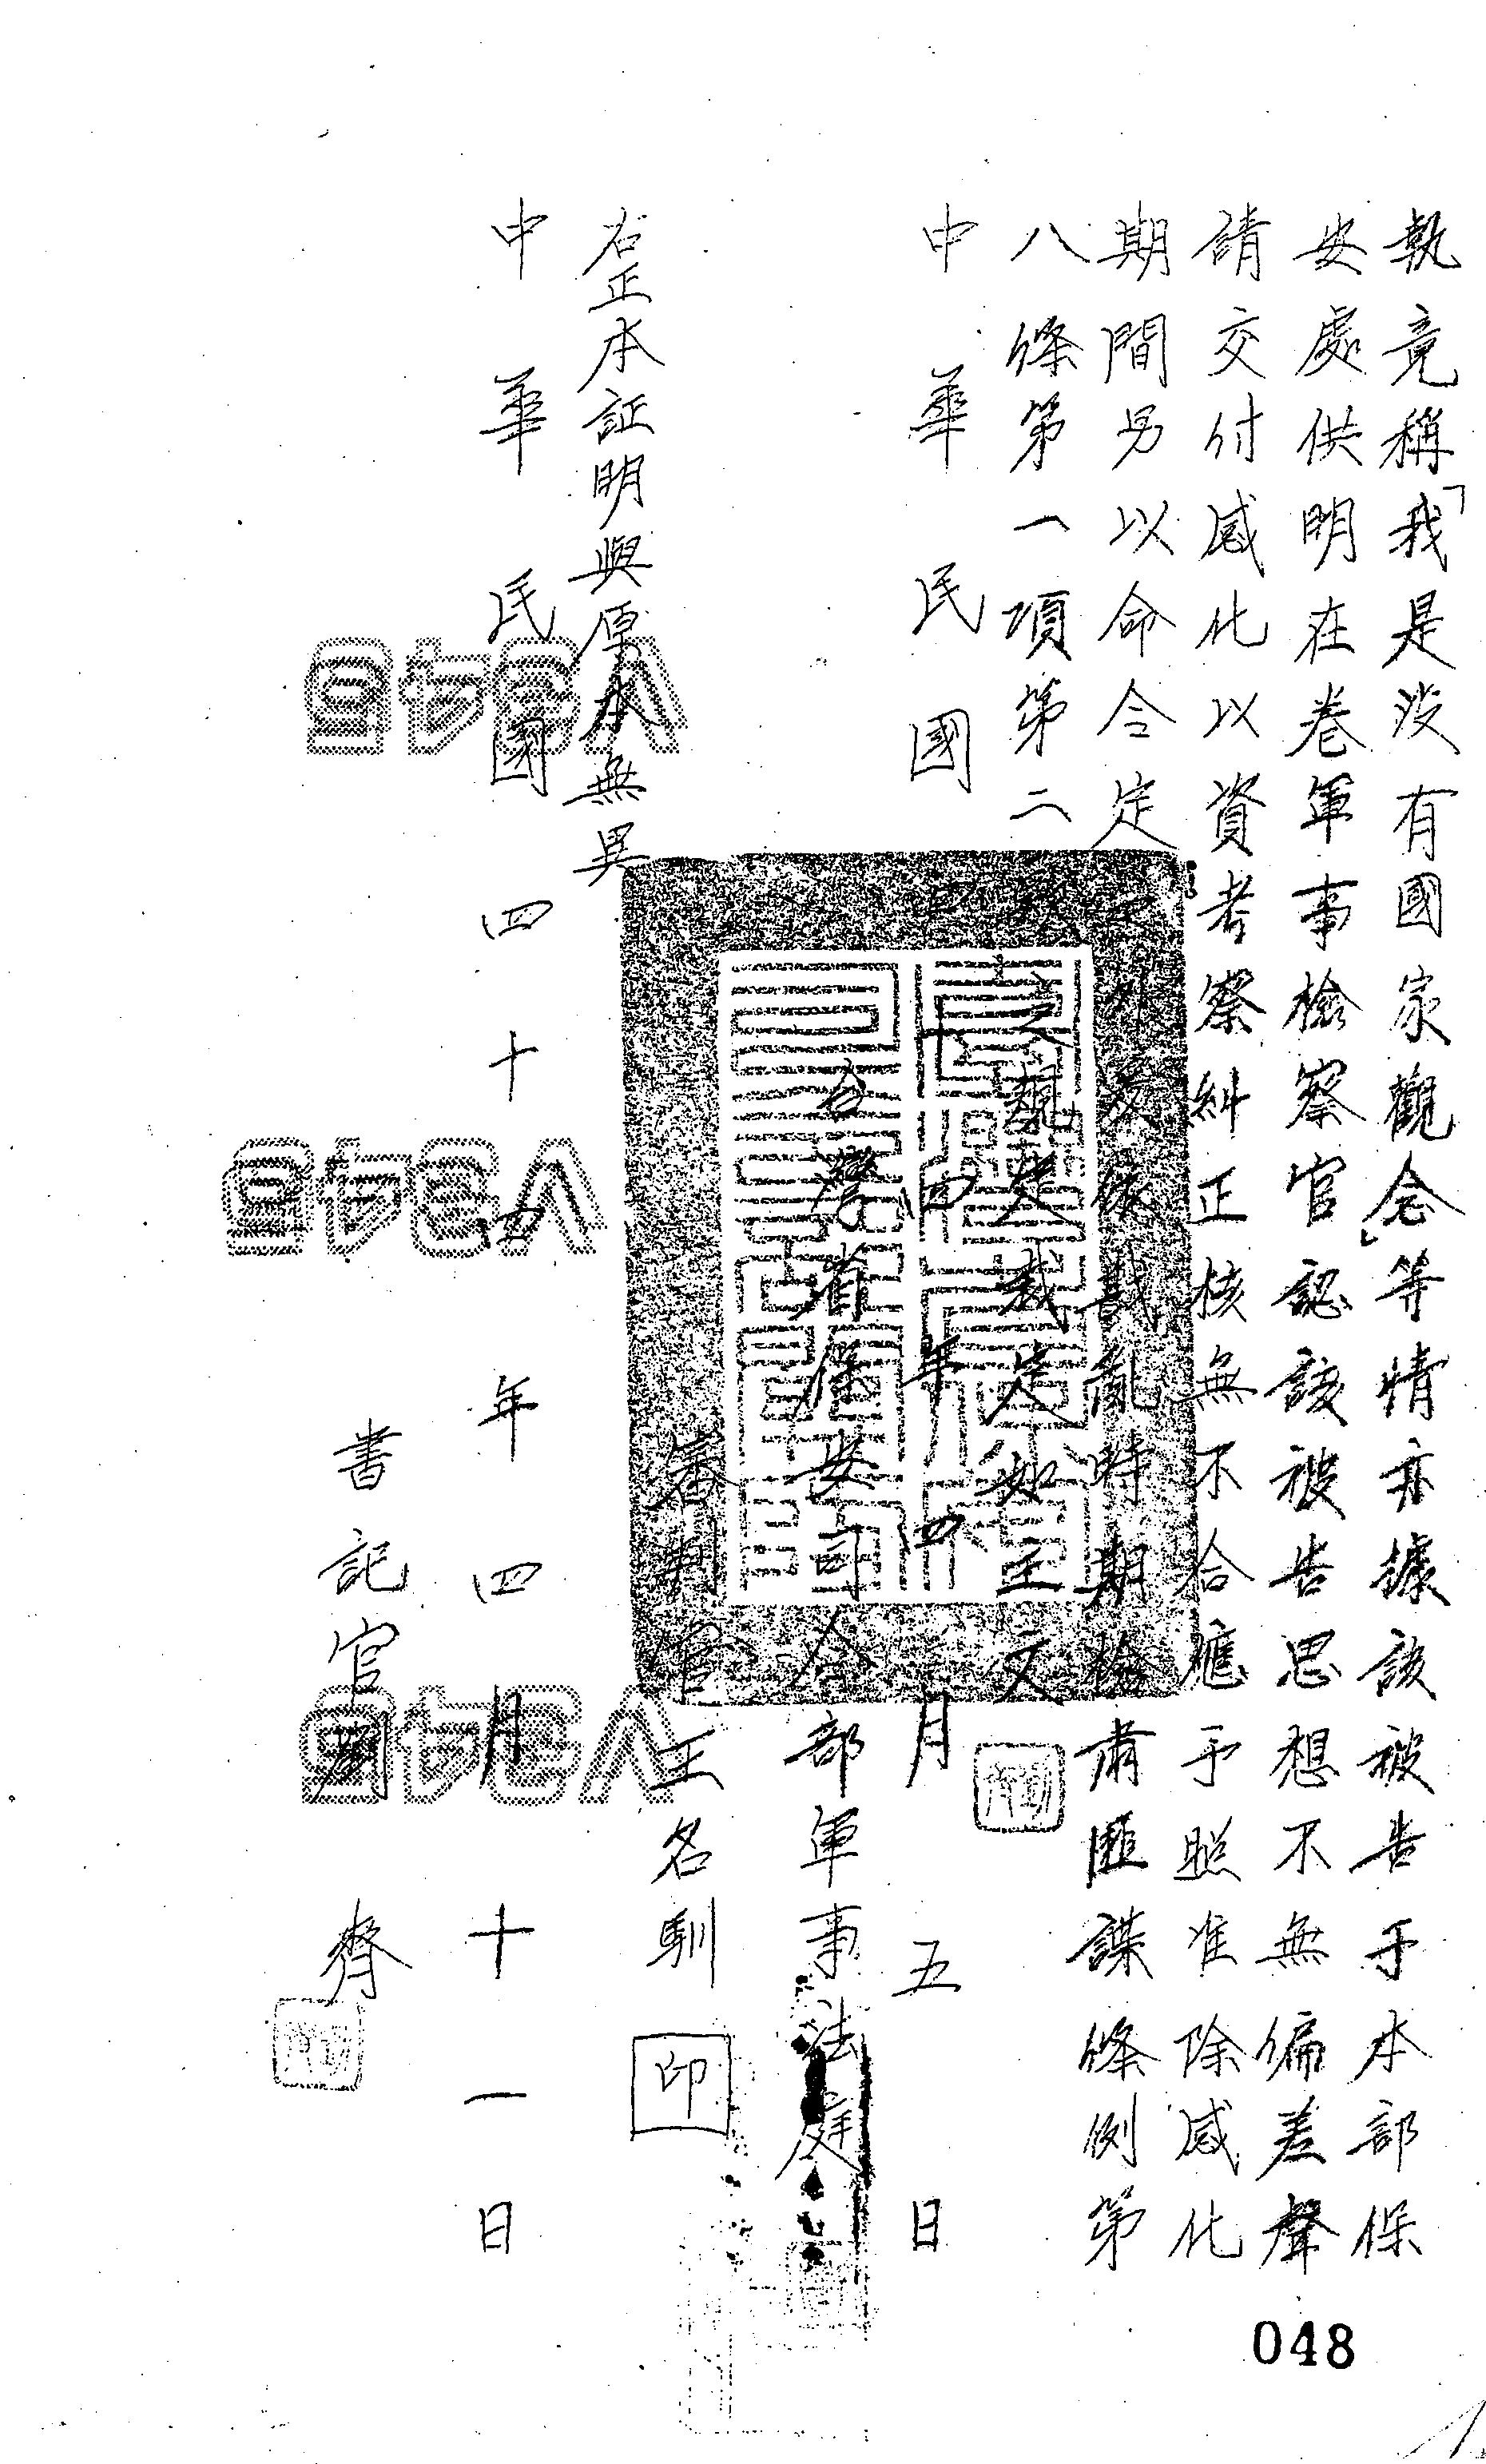 執竟稱「我是沒有國家觀念」等情亦據該被告于本部保
安處供明在卷軍事檢察官認該被告思想不無偏差聲
請交付感化以資考察糾正核無不合應予照准除感化
期間另以命令定之外爰依戡亂時期檢肅匪諜條例第
八條第一項第二款之規定裁定如主文
中華民國四十四年四月五日
台灣省保安司令部軍事法庭
審判官王名馴
印
右正本証明與原本無異
中華民國四十四年四月十一日
書記官劉齊
048